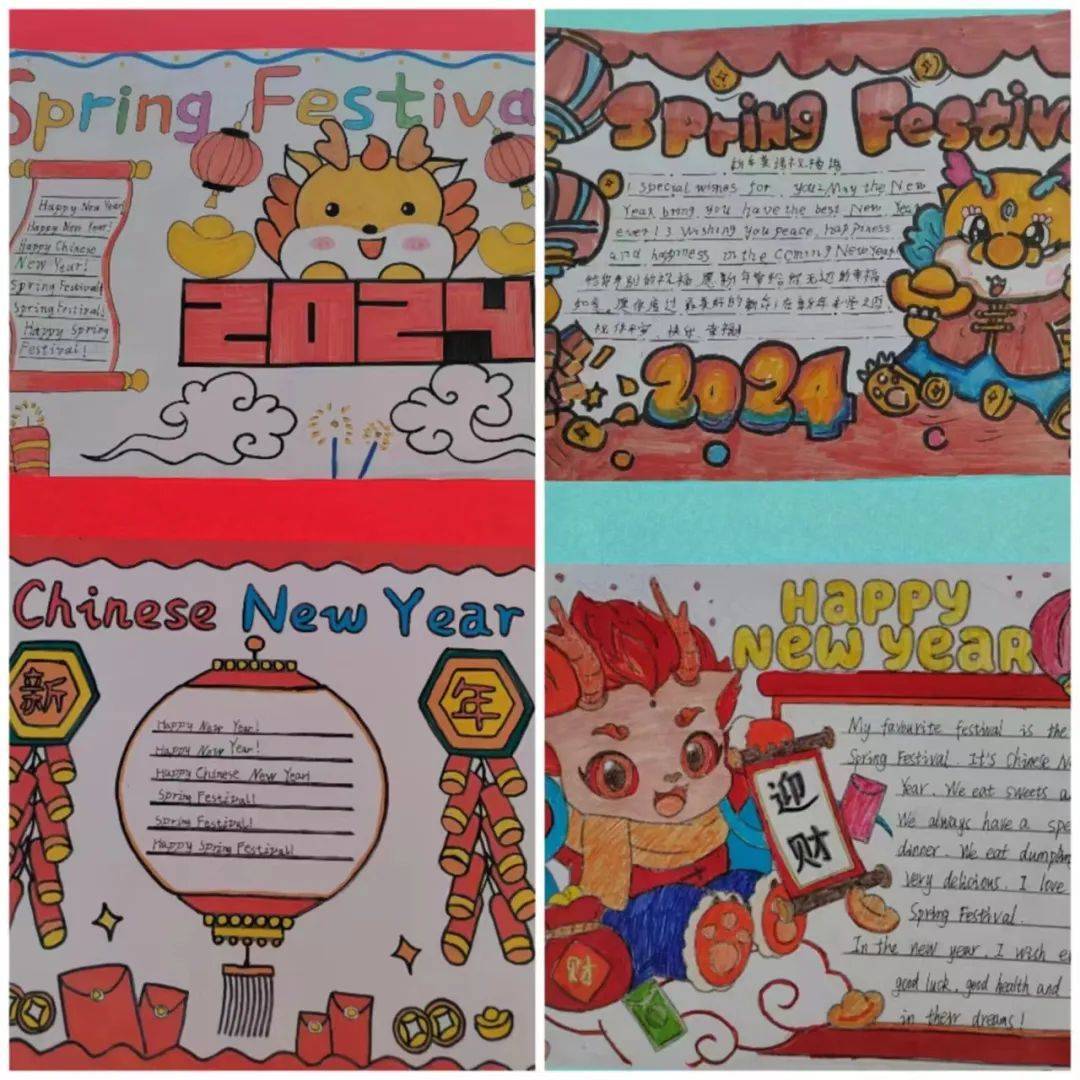 Spring Festiva
Happy New Year
Happy New Year!
Happy Chinese
New Year!
Spring Festival!
Spring Festival!
Happy Spring
Festival!
2024
Spring Festiv
新年英语祝福语
1 special wishes for you2May the New
Year bring you have the best New Year
ever! 3 Wishing you peace, happiness
and happiness in the coming New Year
给你特别的祝福 愿新年带给你无边的幸福
如意,愿你度过最美好的新年!在新年来临之际
祝你平安,快乐 幸福!
2024
Chinese New Year
新
年
Happy New Year!
Happy New Year!
Happy Chinese New Year!
Spring Festival!
Spring Festival!
Happy Spring Festival!
HAPPY
NEW YEAR
迎
财
财
My favourite festival is the
Spring Festival. It's Chinese N
Year. We eat sweets a
We always have a spe
dinner. We eat dumplin
very delicious. I love
Spring Festival.
In the new year, I wish e
good luck, good health and
in their dreams!